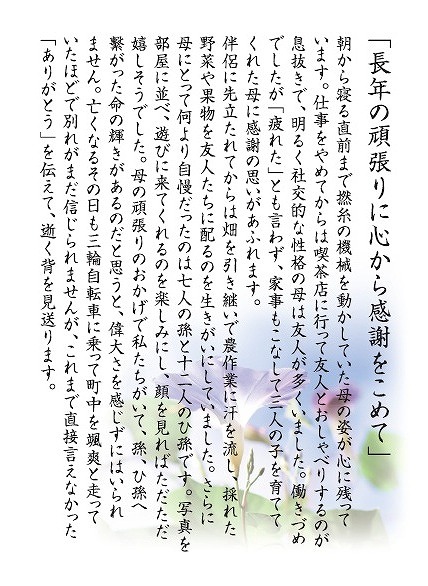 「長年の頑張りに心から感謝をこめて」
朝から寝る直前まで撚糸の機械を動かしていた母の姿が心に残って
います。仕事をやめてからは喫茶店に行って友人とおしゃべりするのが
息抜きで、明るく社交的な性格の母は友人が多くいました。働きづめ
でしたが「疲れた」とも言わず、家事もこなして三人の子を育てて
くれた母に感謝の思いがあふれます。
伴侶に先立たれてからは畑を引き継いで農作業に汗を流し、採れた
野菜や果物を友人たちに配るのを生きがいにしていました。さらに
母にとって何より自慢だったのは七人の孫と十二人のひ孫です。写真を
部屋に並べ、遊びに来てくれるのを楽しみにし、顔を見ればただただ
嬉しそうでした。母の頑張りのおかげで私たちがいて、孫、ひ孫へ
繋がった命の輝きがあるのだと思うと、偉大さを感じずにはいられ
ません。亡くなるその日も三輪自転車に乗って町中を颯爽と走って
いたほどで別れがまだ信じられませんが、これまで直接言えなかった
「ありがとう」を伝えて、逝く背を見送ります。